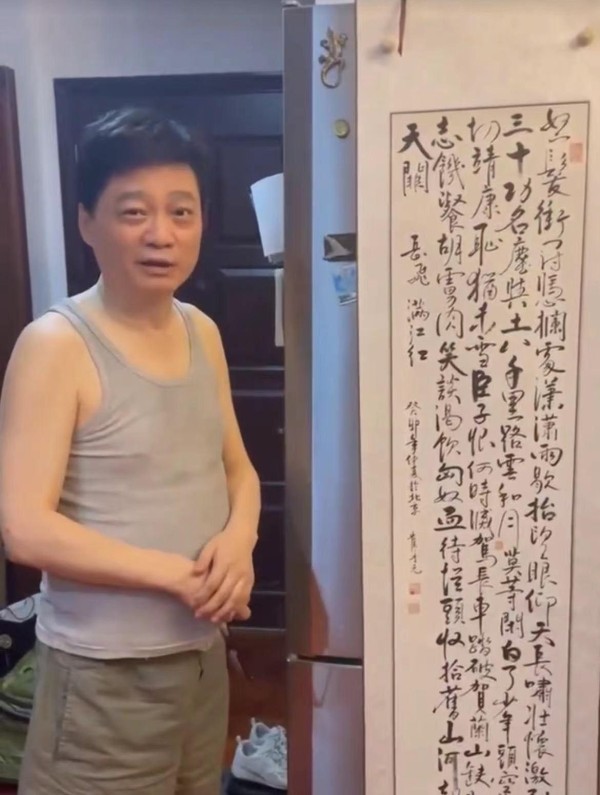 怒髮衝冠憑欄處瀟瀟雨歇抬望眼仰天長嘯壯懷激
三十功名塵與土八千里路雲和月莫等閒白了少年頭空
切靖康恥猶未雪臣子恨何時滅駕長車踏破賀蘭山缺
志饑餐胡虜肉笑談渴飲匈奴血待從頭收拾舊山河
天闕 岳飛 滿江红 癸卯年仲夏於北京